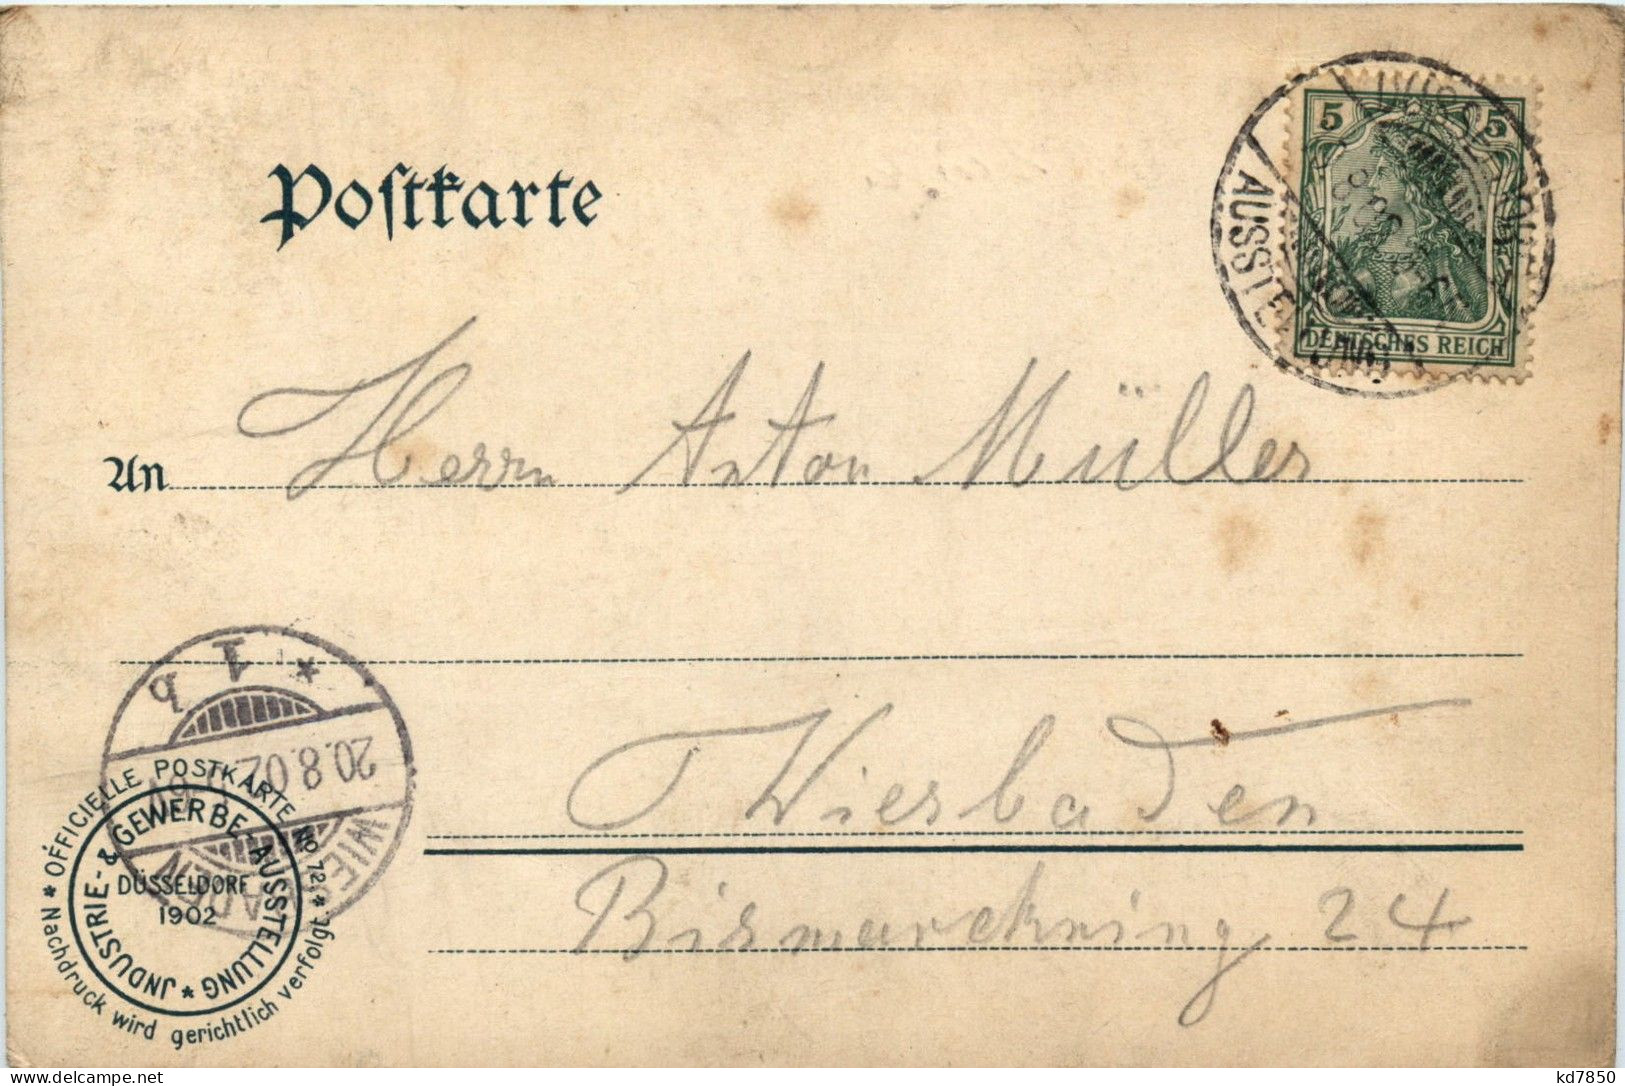 Postkarte
5 5
DEUTSCHES REICH
AUSSTELLUNG
An Herrn Anton Müller
Wiesbaden
Bismarckring 24
WIESBADEN
20.8.02
1 b
*
* OFFICIELLE POSTKARTE No 72. * Nachdruck wird gerichtlich verfolgt
JNDUSTRIE- & GEWERBE-AUSSTELLUNG *
DÜSSELDORF
1902
www.delcampe.net
kd7850